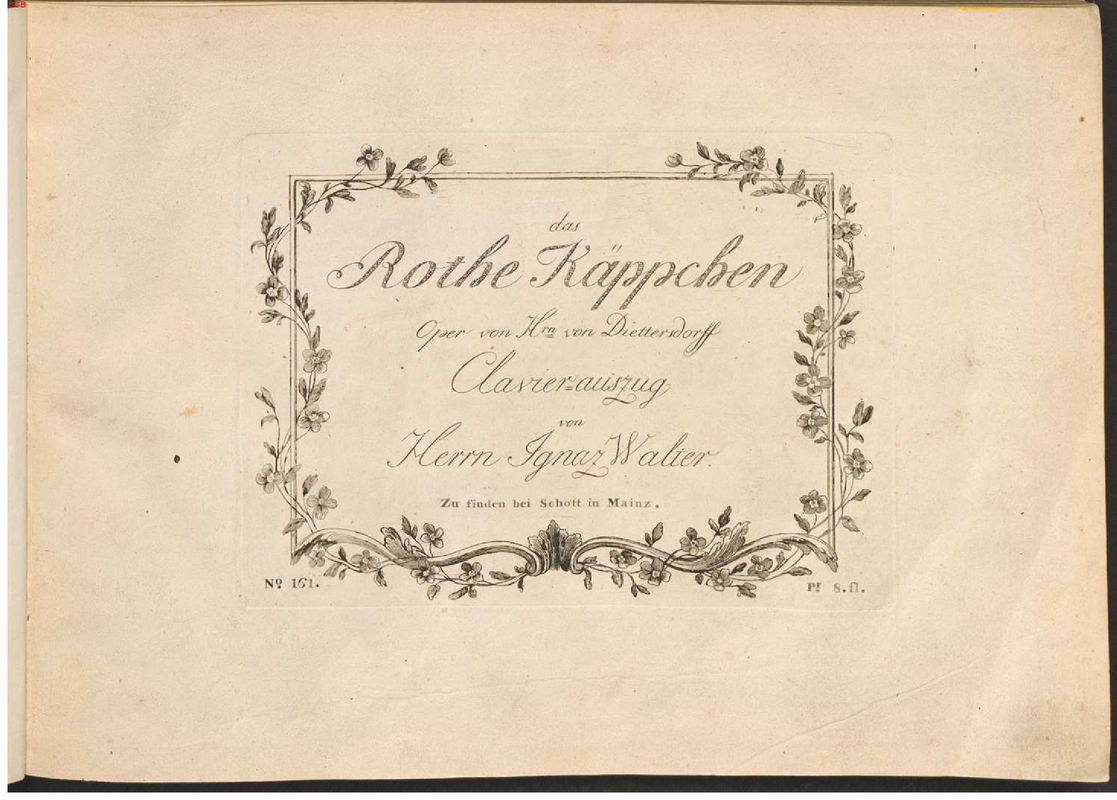 das
Rothe Käppchen
Oper von Hrn von Diettersdorff
Clavier=auszug
von
Herrn Ignaz Walter.
Zu finden bei Schott in Mainz.
No 161.
Pr 8.fl.